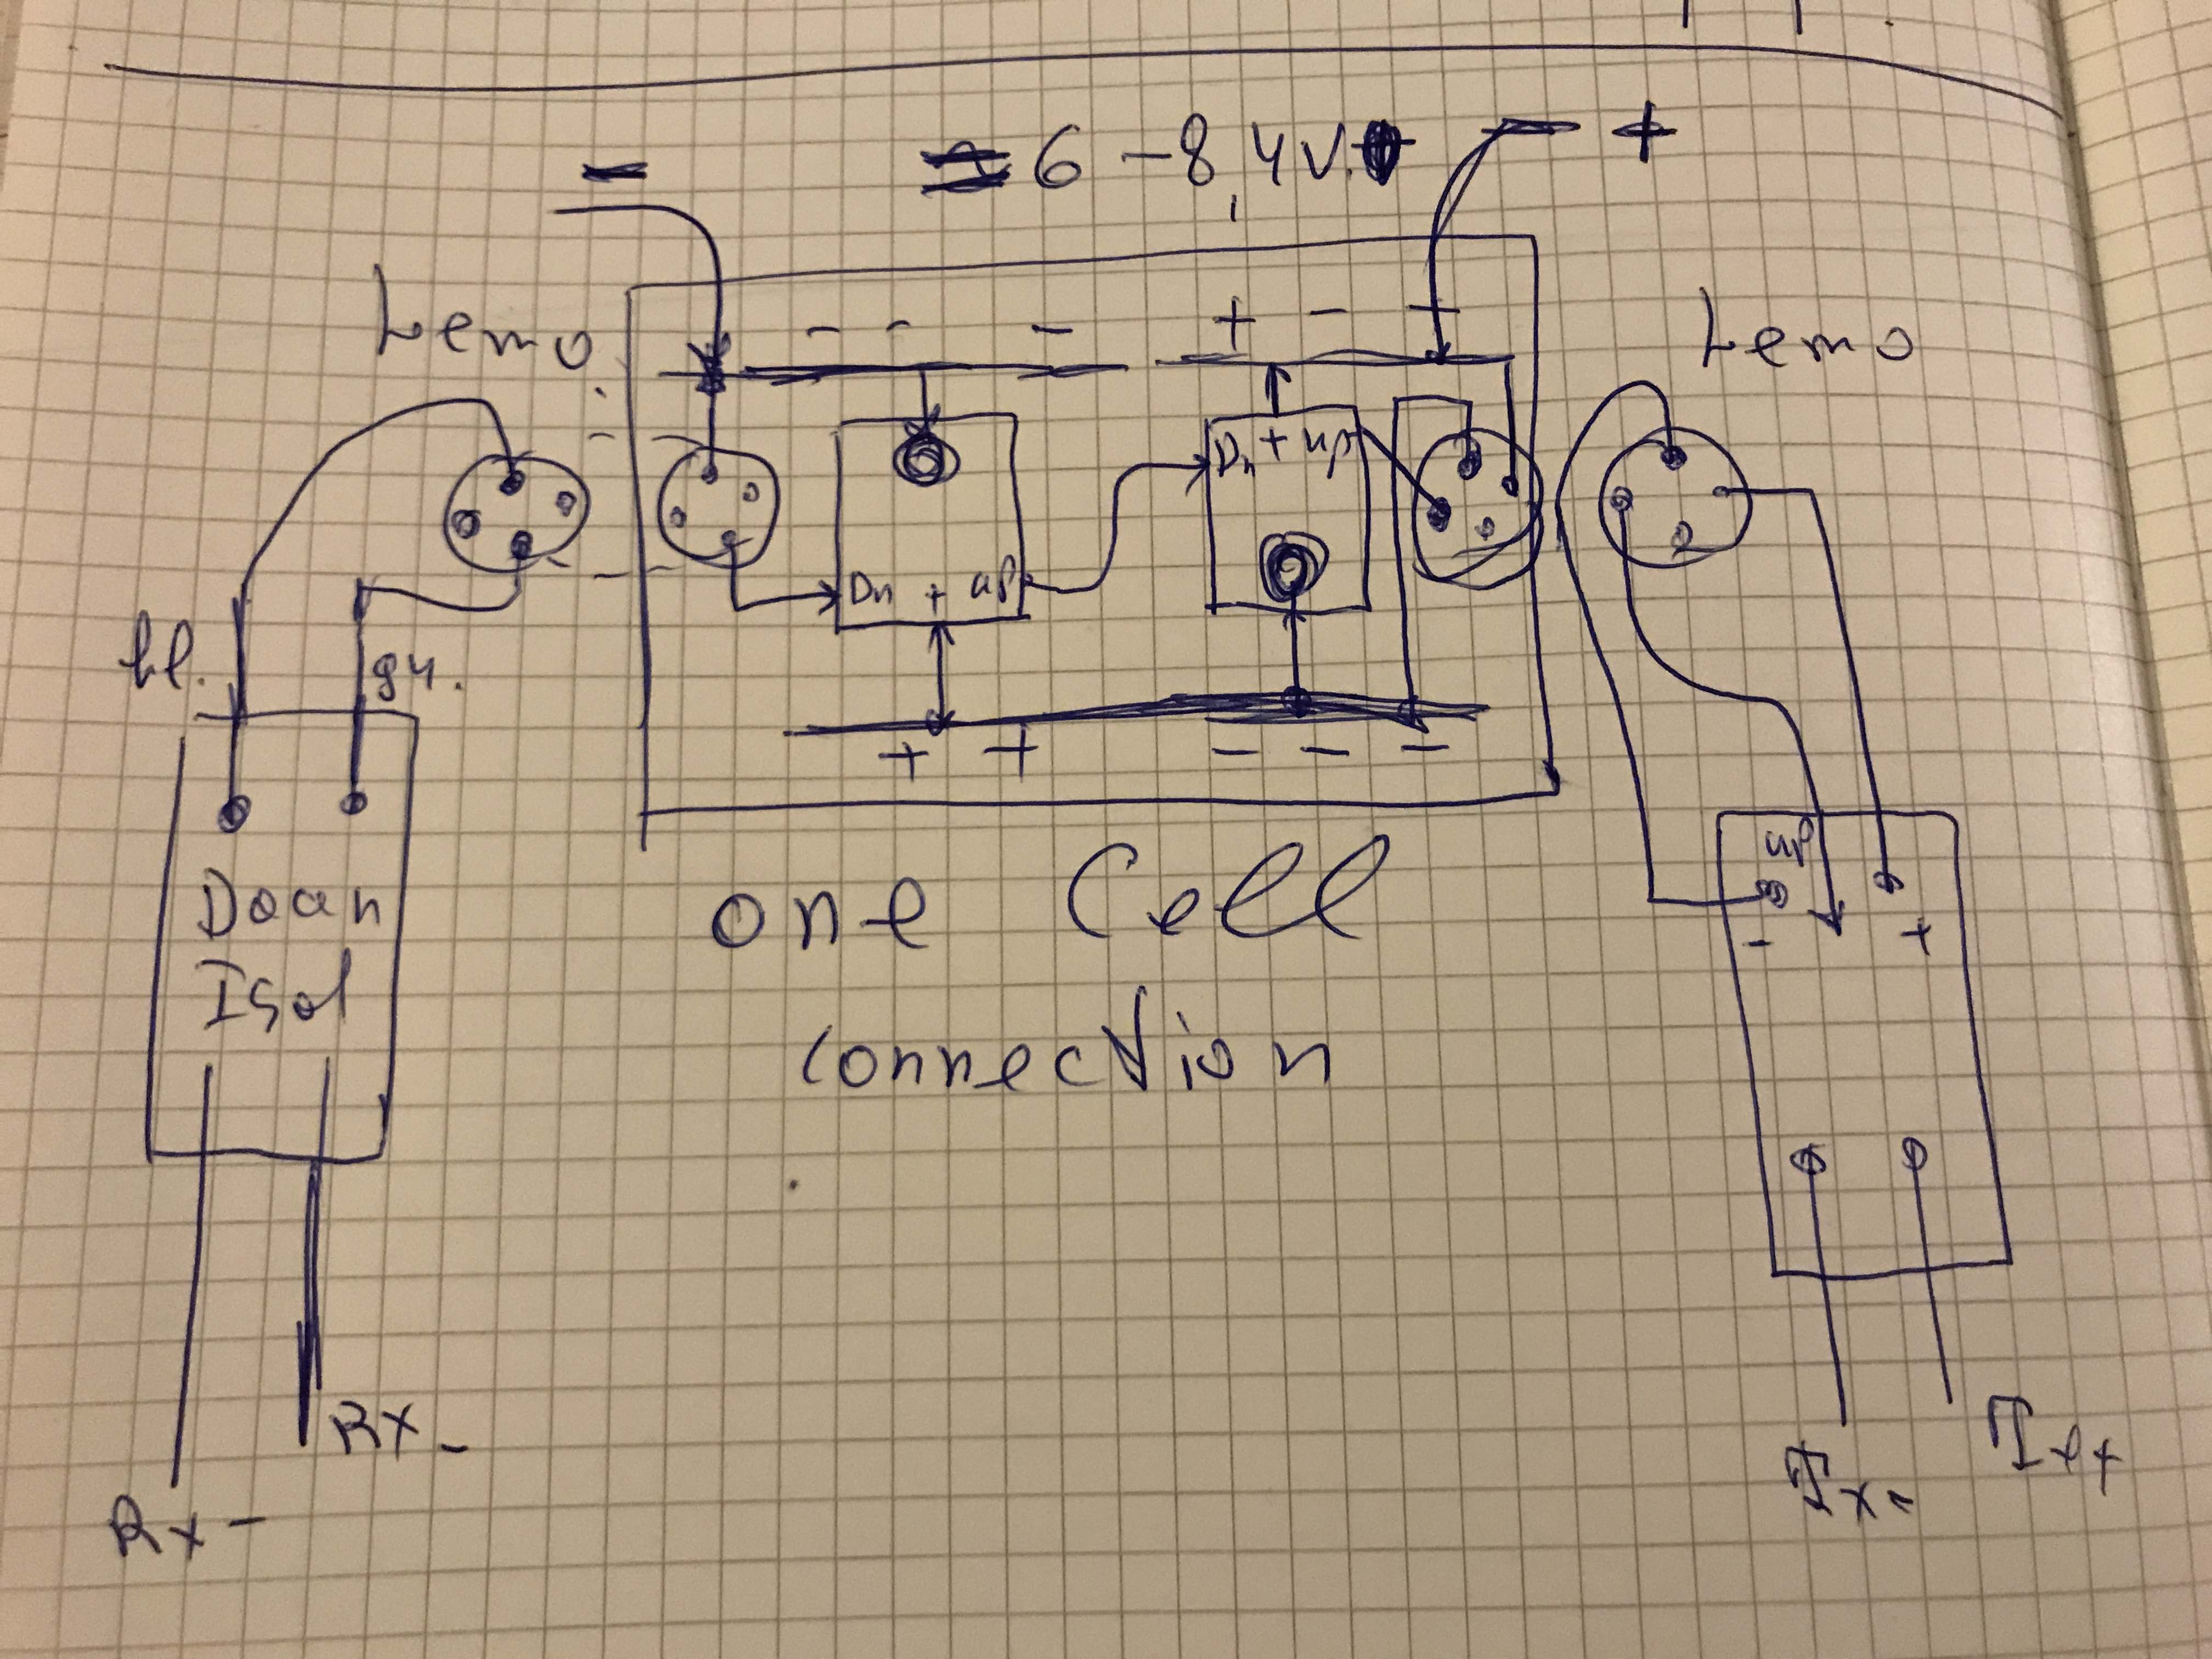 - ≈ 6 - 8,4V. +
Lemo - - - + - + Lemo
Dn + up
Dn + up
bl. gu.
+ + - - -
up
- +
Doan
Isol
one Cell
connection
Rx -
Rx -
Tx -
Tx+